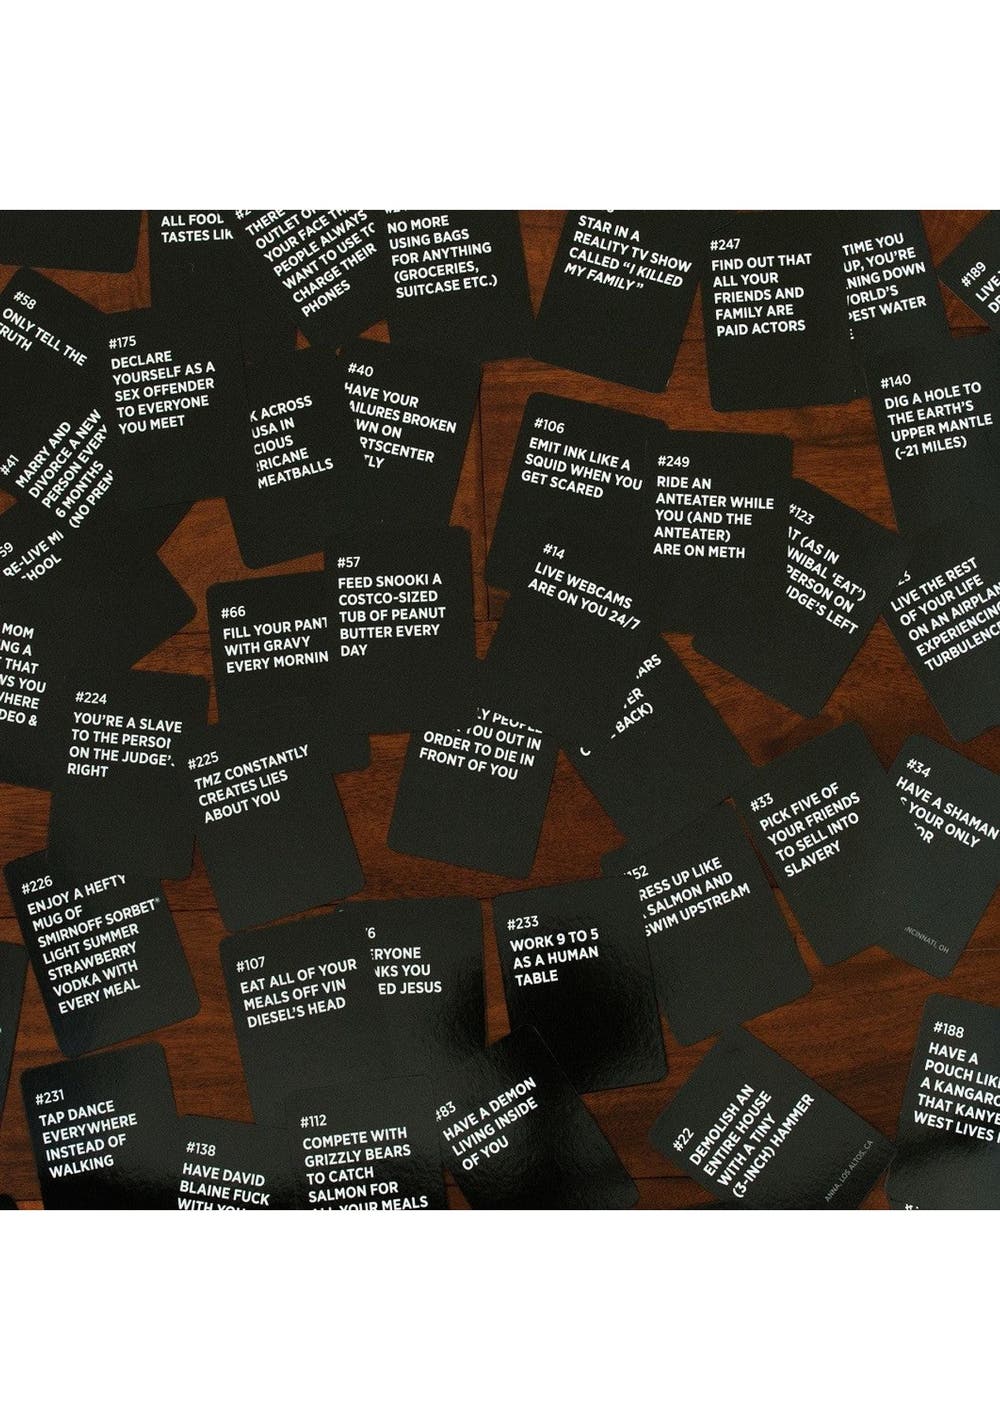 ALL FOOL
TASTES LIK
THERE
OUTLET O
YOUR FACE TH
PEOPLE ALWAYS
WANT TO USE TO
CHARGE THEIR
PHONES
NO MORE
USING BAGS
FOR ANYTHING
(GROCERIES,
SUITCASE ETC.)
STAR IN A
REALITY TV SHOW
CALLED "I KILLED
MY FAMILY"
#247
FIND OUT THAT
ALL YOUR
FRIENDS AND
FAMILY ARE
PAID ACTORS
TIME YOU
UP, YOU'RE
NING DOWN
ORLD'S
EST WATER
#189
LIVE
#58
ONLY TELL THE
RUTH
#175
DECLARE
YOURSELF AS A
SEX OFFENDER
TO EVERYONE
YOU MEET
K ACROSS
USA IN
CIOUS
RRICANE
MEATBALLS
#40
HAVE YOUR
AILURES BROKEN
WN ON
RTSCENTER
TLY
#140
DIG A HOLE TO
THE EARTH'S
UPPER MANTLE
(~21 MILES)
#41
MARRY AND
DIVORCE A NEW
PERSON EVERY
6 MONTHS
(NO PREN
#106
EMIT INK LIKE A
SQUID WHEN YOU
GET SCARED
#249
RIDE AN
ANTEATER WHILE
YOU (AND THE
ANTEATER)
ARE ON METH
#123
AT (AS IN
NNIBAL 'EAT')
PERSON ON
DGE'S LEFT
59
RE-LIVE MI
HOOL
#14
LIVE WEBCAMS
ARE ON YOU 24/7
LIVE THE REST
OF YOUR LIFE
ON AN AIRPLAN
EXPERIENCING
TURBULENC
#66
FILL YOUR PANT
WITH GRAVY
EVERY MORNIN
#57
FEED SNOOKI A
COSTCO-SIZED
TUB OF PEANUT
BUTTER EVERY
DAY
MOM
NG A
THAT
WS YOU
WHERE
DEO &
#224
YOU'RE A SLAVE
TO THE PERSON
ON THE JUDGE'S
RIGHT
#225
TMZ CONSTANTLY
CREATES LIES
ABOUT YOU
LY PEOPLE
YOU OUT IN
ORDER TO DIE IN
FRONT OF YOU
ARS
ER
BACK)
#33
PICK FIVE OF
YOUR FRIENDS
TO SELL INTO
SLAVERY
#34
HAVE A SHAMAN
S YOUR ONLY
OR
NCINNATI, OH
#226
ENJOY A HEFTY
MUG OF
SMIRNOFF SORBET®
LIGHT SUMMER
STRAWBERRY
VODKA WITH
EVERY MEAL
152
RESS UP LIKE
SALMON AND
SWIM UPSTREAM
#107
EAT ALL OF YOUR
MEALS OFF VIN
DIESEL'S HEAD
6
ERYONE
NKS YOU
ED JESUS
#233
WORK 9 TO 5
AS A HUMAN
TABLE
#188
HAVE A
POUCH LIKE
A KANGARO
THAT KANYE
WEST LIVES I
#231
TAP DANCE
EVERYWHERE
INSTEAD OF
WALKING
#138
HAVE DAVID
BLAINE FUCK
WITH YOU
#112
COMPETE WITH
GRIZZLY BEARS
TO CATCH
SALMON FOR
ALL YOUR MEALS
#83
HAVE A DEMON
LIVING INSIDE
OF YOU
#22
DEMOLISH AN
ENTIRE HOUSE
WITH A TINY
(3-INCH) HAMMER
ANNA, LOS ALTOS, CA